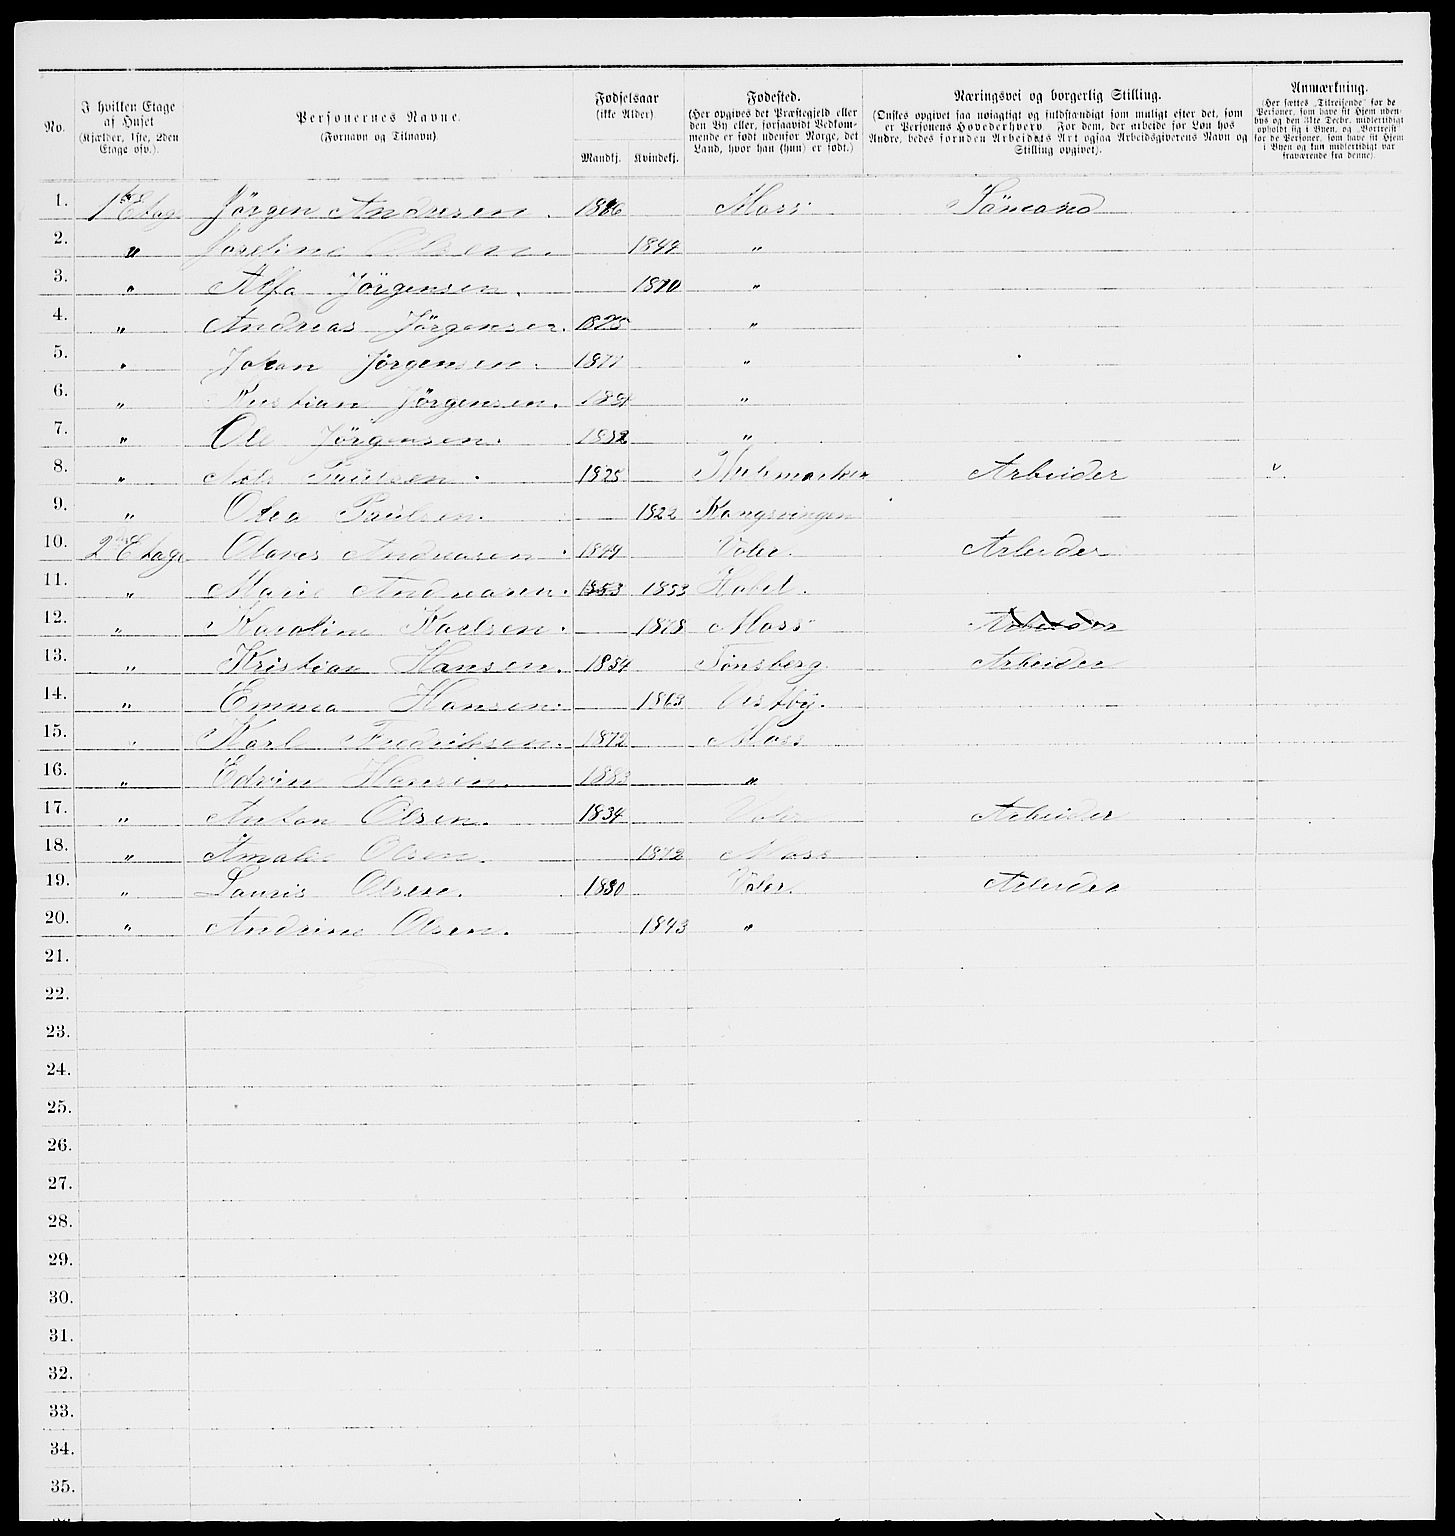 No.
I hvilken Etage
af Huset
(Kjælder, 1ste, 2den
Etage osv.).
Personernes Navne.
(Fornavn og Tilnavn).
Fødselsaar
(ikke Alder)
Mandkj. Kvindekj.
Fødested.
(Her opgives det Præstegjeld eller
den By eller, forsaavidt Vedkom-
mende er født udenfor Norge, det
Land, hvor han (hun) er født.)
Næringsvei og borgerlig Stilling.
(Ønskes opgivet saa nøiagtigt og fuldstændigt som muligt efter det, som
er Personens Hovederhverv. For dem, der arbeide for Løn hos
Andre, bedes foruden Arbeidets Art ogsaa Arbeidsgiverens Navn og
Stilling opgivet).
Anmærkning.
(Her sættes „Tilreisende" for de
Personer, som have sit Hjem uden-
bys og den 31te Decbr. midlertidigt
opholdt sig i Byen, og „Bortreist"
for de Personer, som have sit Hjem
i Byen og kun midlertidigt var
fraværende fra denne).
1. 1ste Etage Jörgen Andresen. Moss Sömand
2. " Olsen. 1844 "
3. " Jörgensen. 1870 "
4. " Andreas Jörgensen. 1875 "
5. " Johan Jörgensen. 1877 "
6. " Kristian Jörgensen. "
7. " Ole Jörgensen. 1882 "
8. " Paulsen. 1825 Arbeider "
9. " Olea Paulsen. 1822 Kongsvingen
10. 2den Etage Andreasen. 1849 Våler. Arbeider
11. " Marie Andreasen. 1853 1853 Hobøl.
12. " Karoline Karlsen. 1878 Moss Arbeider
13. " Kristian Hansen. 1854 Tönsberg. Arbeider
14. " Emma Hansen. 1863
15. " Karl Fredriksen. 1872 Moss
16. " Edvin Hansen. 1883 "
17. " Anton Olsen. 1834 Våler Arbeider
18. " Amalie Olsen. 1872 Moss
19. " Lauris Olsen. Våler. Arbeider
20. " Andrine Olsen. 1843 "
21.
22.
23.
24.
25.
26.
27.
28.
29.
30.
31.
32.
33.
34.
35.